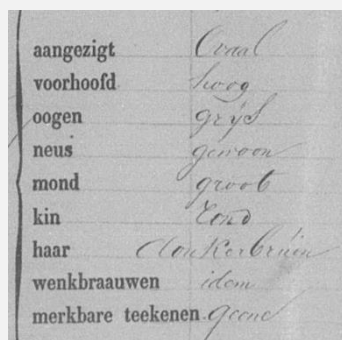 aangezigt Ovaal
voorhoofd hoog
oogen grijs
neus gewoon
mond groot
kin rond
haar donkerbruin
wenkbraauwen idem
merkbare teekenen geene